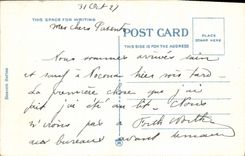 31 Oct 27
THIS SPACE FOR WRITING
Mes chers Parents
POST CARD
PLACE STAMP HERE
THIS SIDE IS FOR THE ADDRESS
Nous sommes arrivés sain
et sauf à hier soir tard.
La première chose que j'ai
fait j'ai été au lit. Nous
n'irons pas à Forth Worth
aux bureaux avant